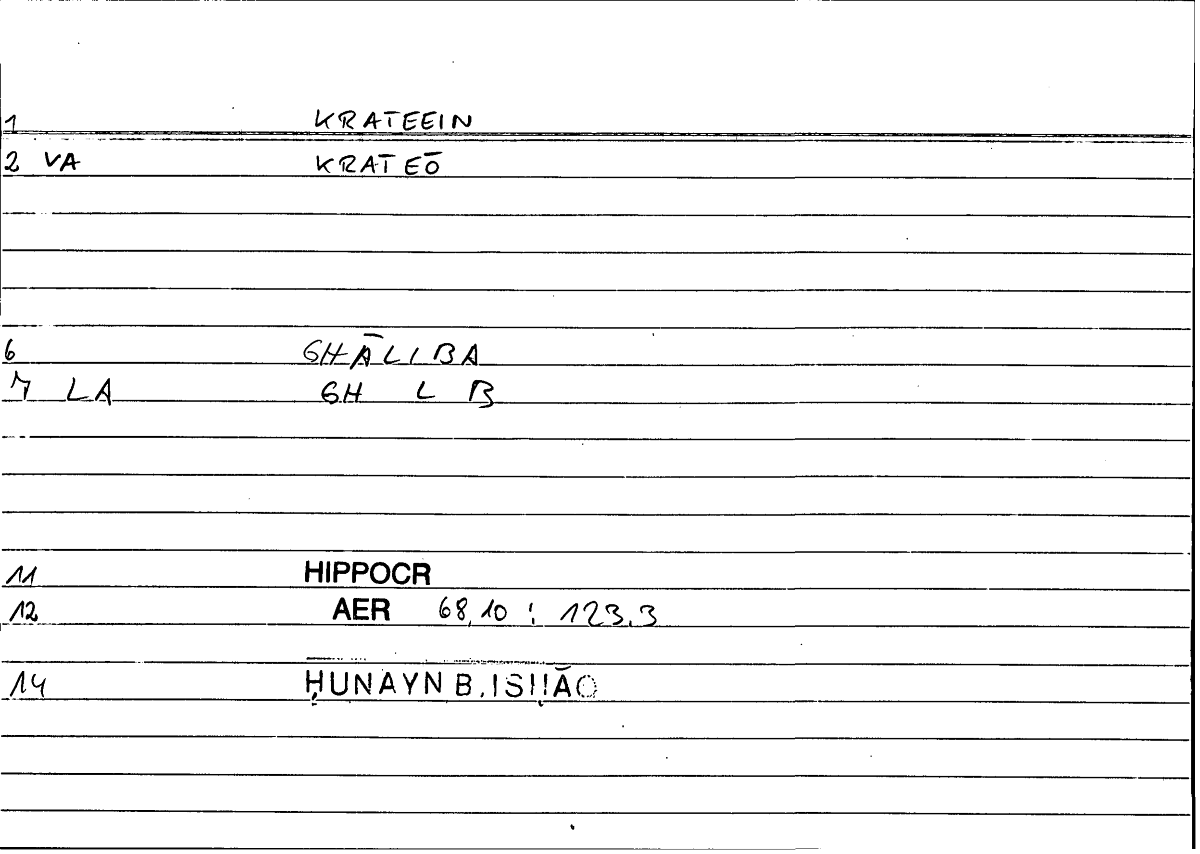 1 KRATEEIN
2 VA KRATEŌ
6 GHĀLIBA
7 LA GH L B
11 HIPPOCR
12 AER 68,10 : 123.3
14 ḤUNAYN B. ISḤĀQ